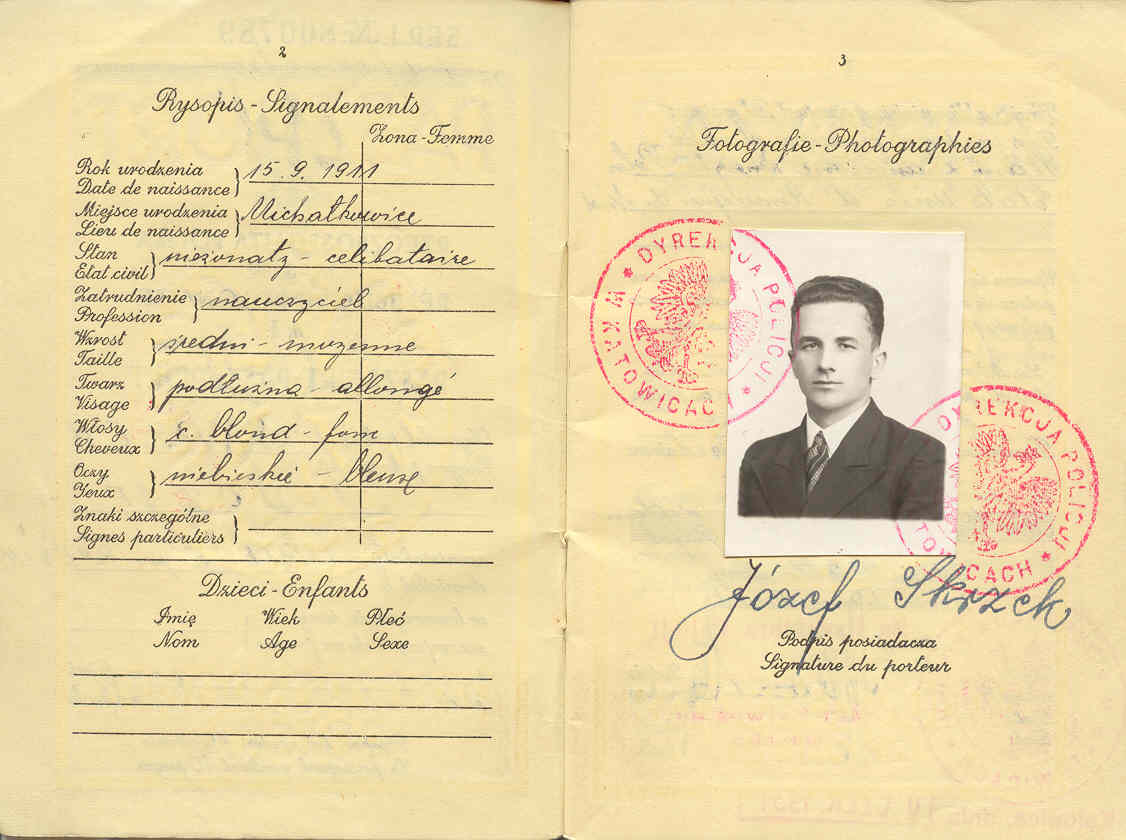 2
Rysopis - Signalements
Żona - Femme
Rok urodzenia
Date de naissance
15. 9. 1911
Miejsce urodzenia
Lieu de naissance
Michałkowice
Stan
Etat civil
nieżonaty - celibataire
Zatrudnienie
Profession
nauczyciel
Wzrost
Taille
średni - moyenne
Twarz
Visage
podłużna - allongé
Włosy
Cheveux
c. blond -
Oczy
Yeux
niebieskie -
Znaki szczególne
Signes particuliers
Dzieci - Enfants
Imię Wiek Płeć
Nom Age Sexe
3
Fotografie - Photographies
DYREKCJA POLICJI * W KATOWICACH *
DYREKCJA POLICJI * TOWICACH
Józef Skrzek
Podpis posiadacza
Signature du porteur